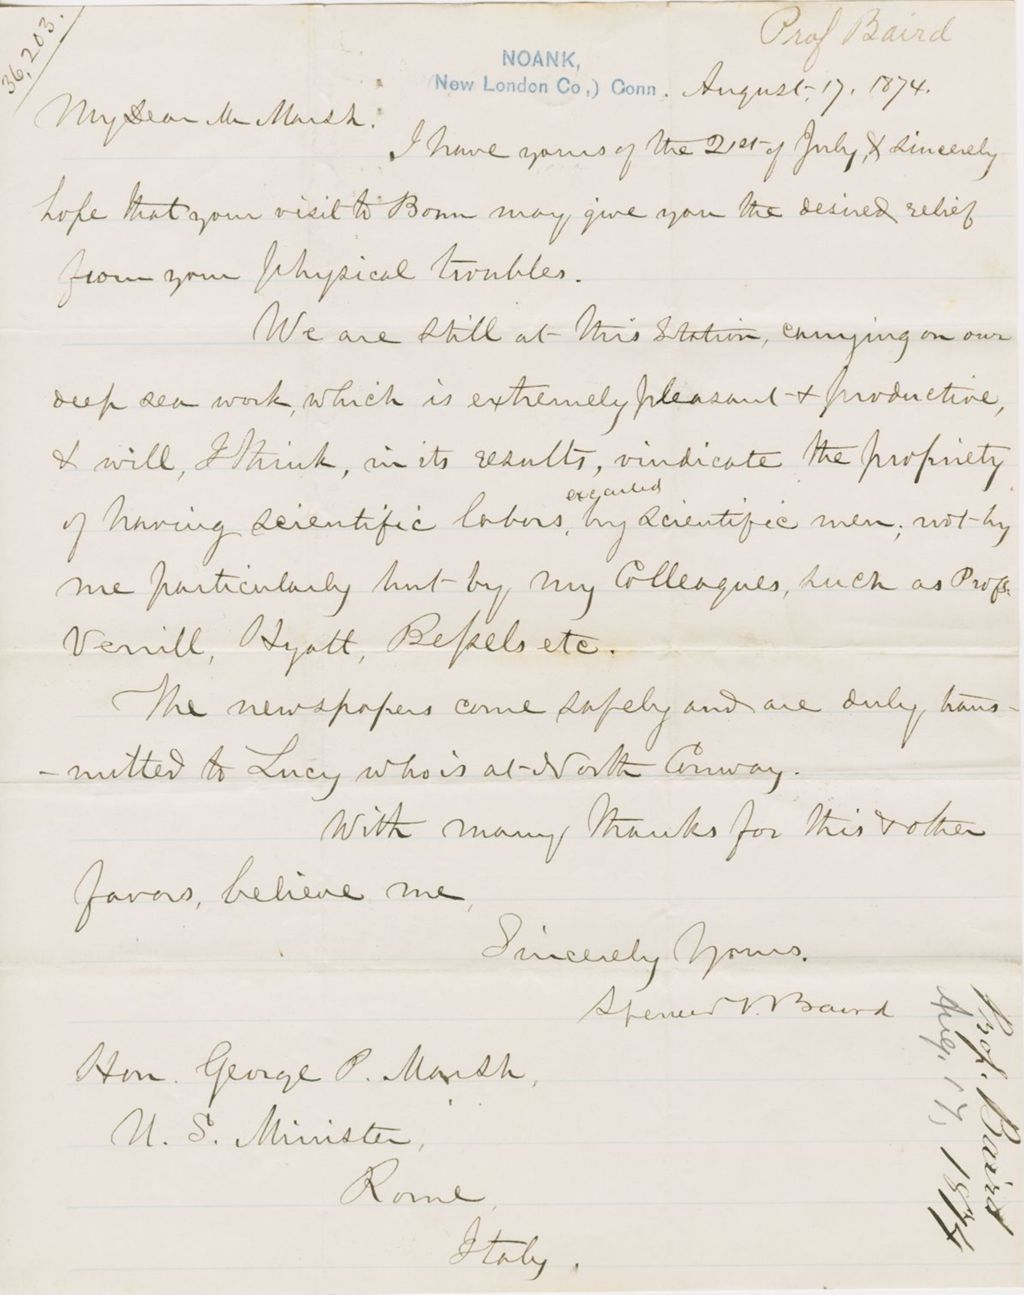 36,203.
Prof Baird
NOANK,
New London Co,) Conn. August, 17, 1874.
My Dear Mr Marsh.
I have yours of the 21st of July, & sincerely
hope that your visit to Bonn may give you the desired relief
from your physical troubles.
We are still at this Station, carrying on our
deep sea work, which is extremely pleasant & productive,
& will, I think, in its results, vindicate the propriety
of having scientific labors, executed by scientific men; not by
me particularly but by my Colleagues, such as Profs.
Verrill, Hyatt, Bessels etc.
The newspapers come safely and are duly trans-
-mitted to Lucy who is at North Conway.
With many thanks for this & other
favors, believe me,
Sincerely Yours.
Spencer F. Baird
Hon. George P. Marsh,
U. S. Minister,
Rome,
Italy.
Prof. Baird
Aug. 17, 1874